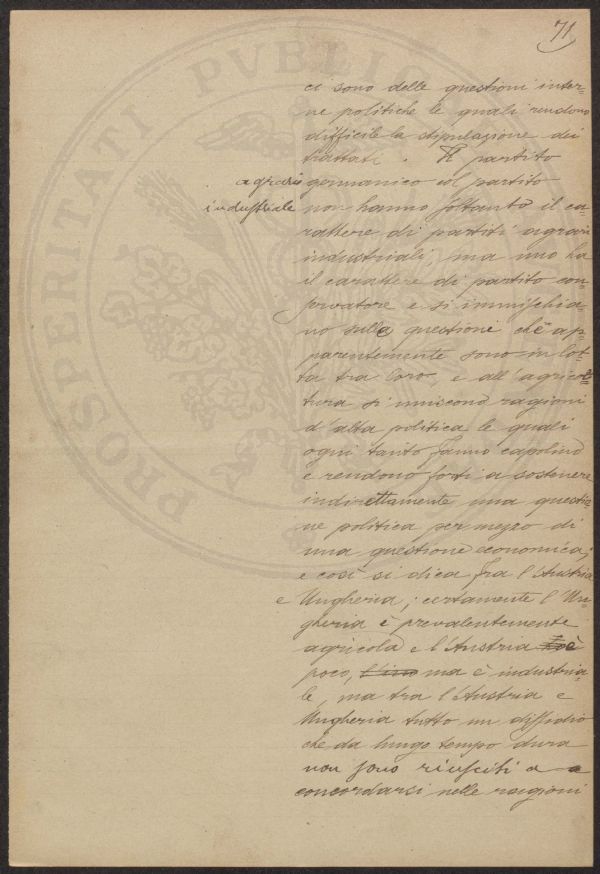 71
ci sono delle questioni inter=
ne politiche le quali rendono
difficile la stipulazione dei
trattati. Il partito
agrario germanico ed partito
industriale non hanno soltanto il ca=
rattere di partiti agrari
industriali, ma uno ha
il carattere di partito con=
servatore e si immischia
no sulle questioni che ap=
parentemente sono in lot=
ta tra loro, e all'agricol=
tura si uniscono ragioni
d'alta politica le quali
ogni tanto fanno capolino
e rendono forti a sostenere
indirettamente una questio
ne politica per mezzo di
una questione economica;
e così si dica fra l'Austria
e Ungheria; certamente l'Un=
gheria è prevalentemente
agricola e l'Austria è
poco, ma è industria=
le, ma tra l'Austria e
Ungheria tutto un dissidio
che da lungo tempo dura
non sono riusciti a
concordarsi nelle ragioni
PROSPERITATI PVBLICA